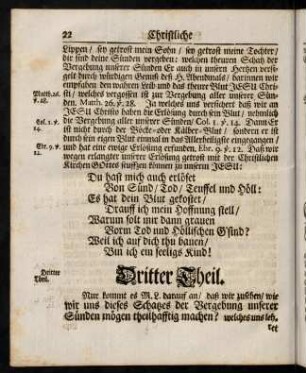 22 Christliche
Lippen/ sey getrost mein Sohn/ sey getrost meine Tochter/
dir sind deine Sünden vergeben: welchen theuren Schatz der
Vergebung unserer Sünden Er auch in unsern Hertzen versi-
gelt durch würdigen Genuß deß H. Abendmals/ darinnen wir
empfahen den wahren Leib und das theure Blut JESU Chri-
Matth. 26.
v. 28.
sti/ welches vergossen ist zur Vergebung aller unserer Sün-
den. Matth. 26. v. 28. Ja welches uns versichert daß wir an
JESU Christo haben die Erlösung durch sein Blut/ nehmlich
Col. 1. v.
14.
die Vergebung aller unserer Sünden/ Col. 1. v. 14. Dann Er
ist nicht durch der Böcke oder Kälber-Blut/ sondern er ist
durch sein eigen Blut einmal in das Allerheiligste eingegangen/
Ebr. 9. v.
12.
und hat eine ewige Erlösung erfunden. Ebr. 9. v. 12. Daß wir
wegen erlangter unserer Erlösung getrost mit der Christlichen
Kirchen GOttes seufftzen können zu unserm JESU:
Du hast mich auch erlöset
Von Sünd/ Tod/ Teuffel und Höll:
Es hat dein Blut gekostet/
Drauff ich mein Hoffnung stell/
Warum solt mir dann grauen
Vorm Tod und Höllischen G'sind?
Weil ich auf dich thu bauen/
Bin ich ein seeligs Kind!
Dritter
Theil.
Dritter Theil.
Nun kommt es M. L. darauf an/ daß wir zusehen/ wie
wir uns dieses Schatzes der Vergebung unserer
Sünden mögen theilhafftig machen? welches uns leh-
ret